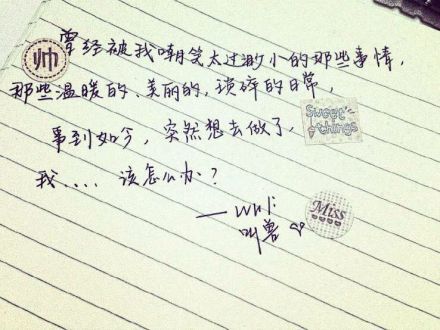 帅
曾经被我嘲笑太过渺小的那些事情,
那些温暖的、美丽的,琐碎的日常,
事到如今,突然想去做了,
Sweet things
我..... 该怎么办?
— wuli
叫兽 ♡
Miss